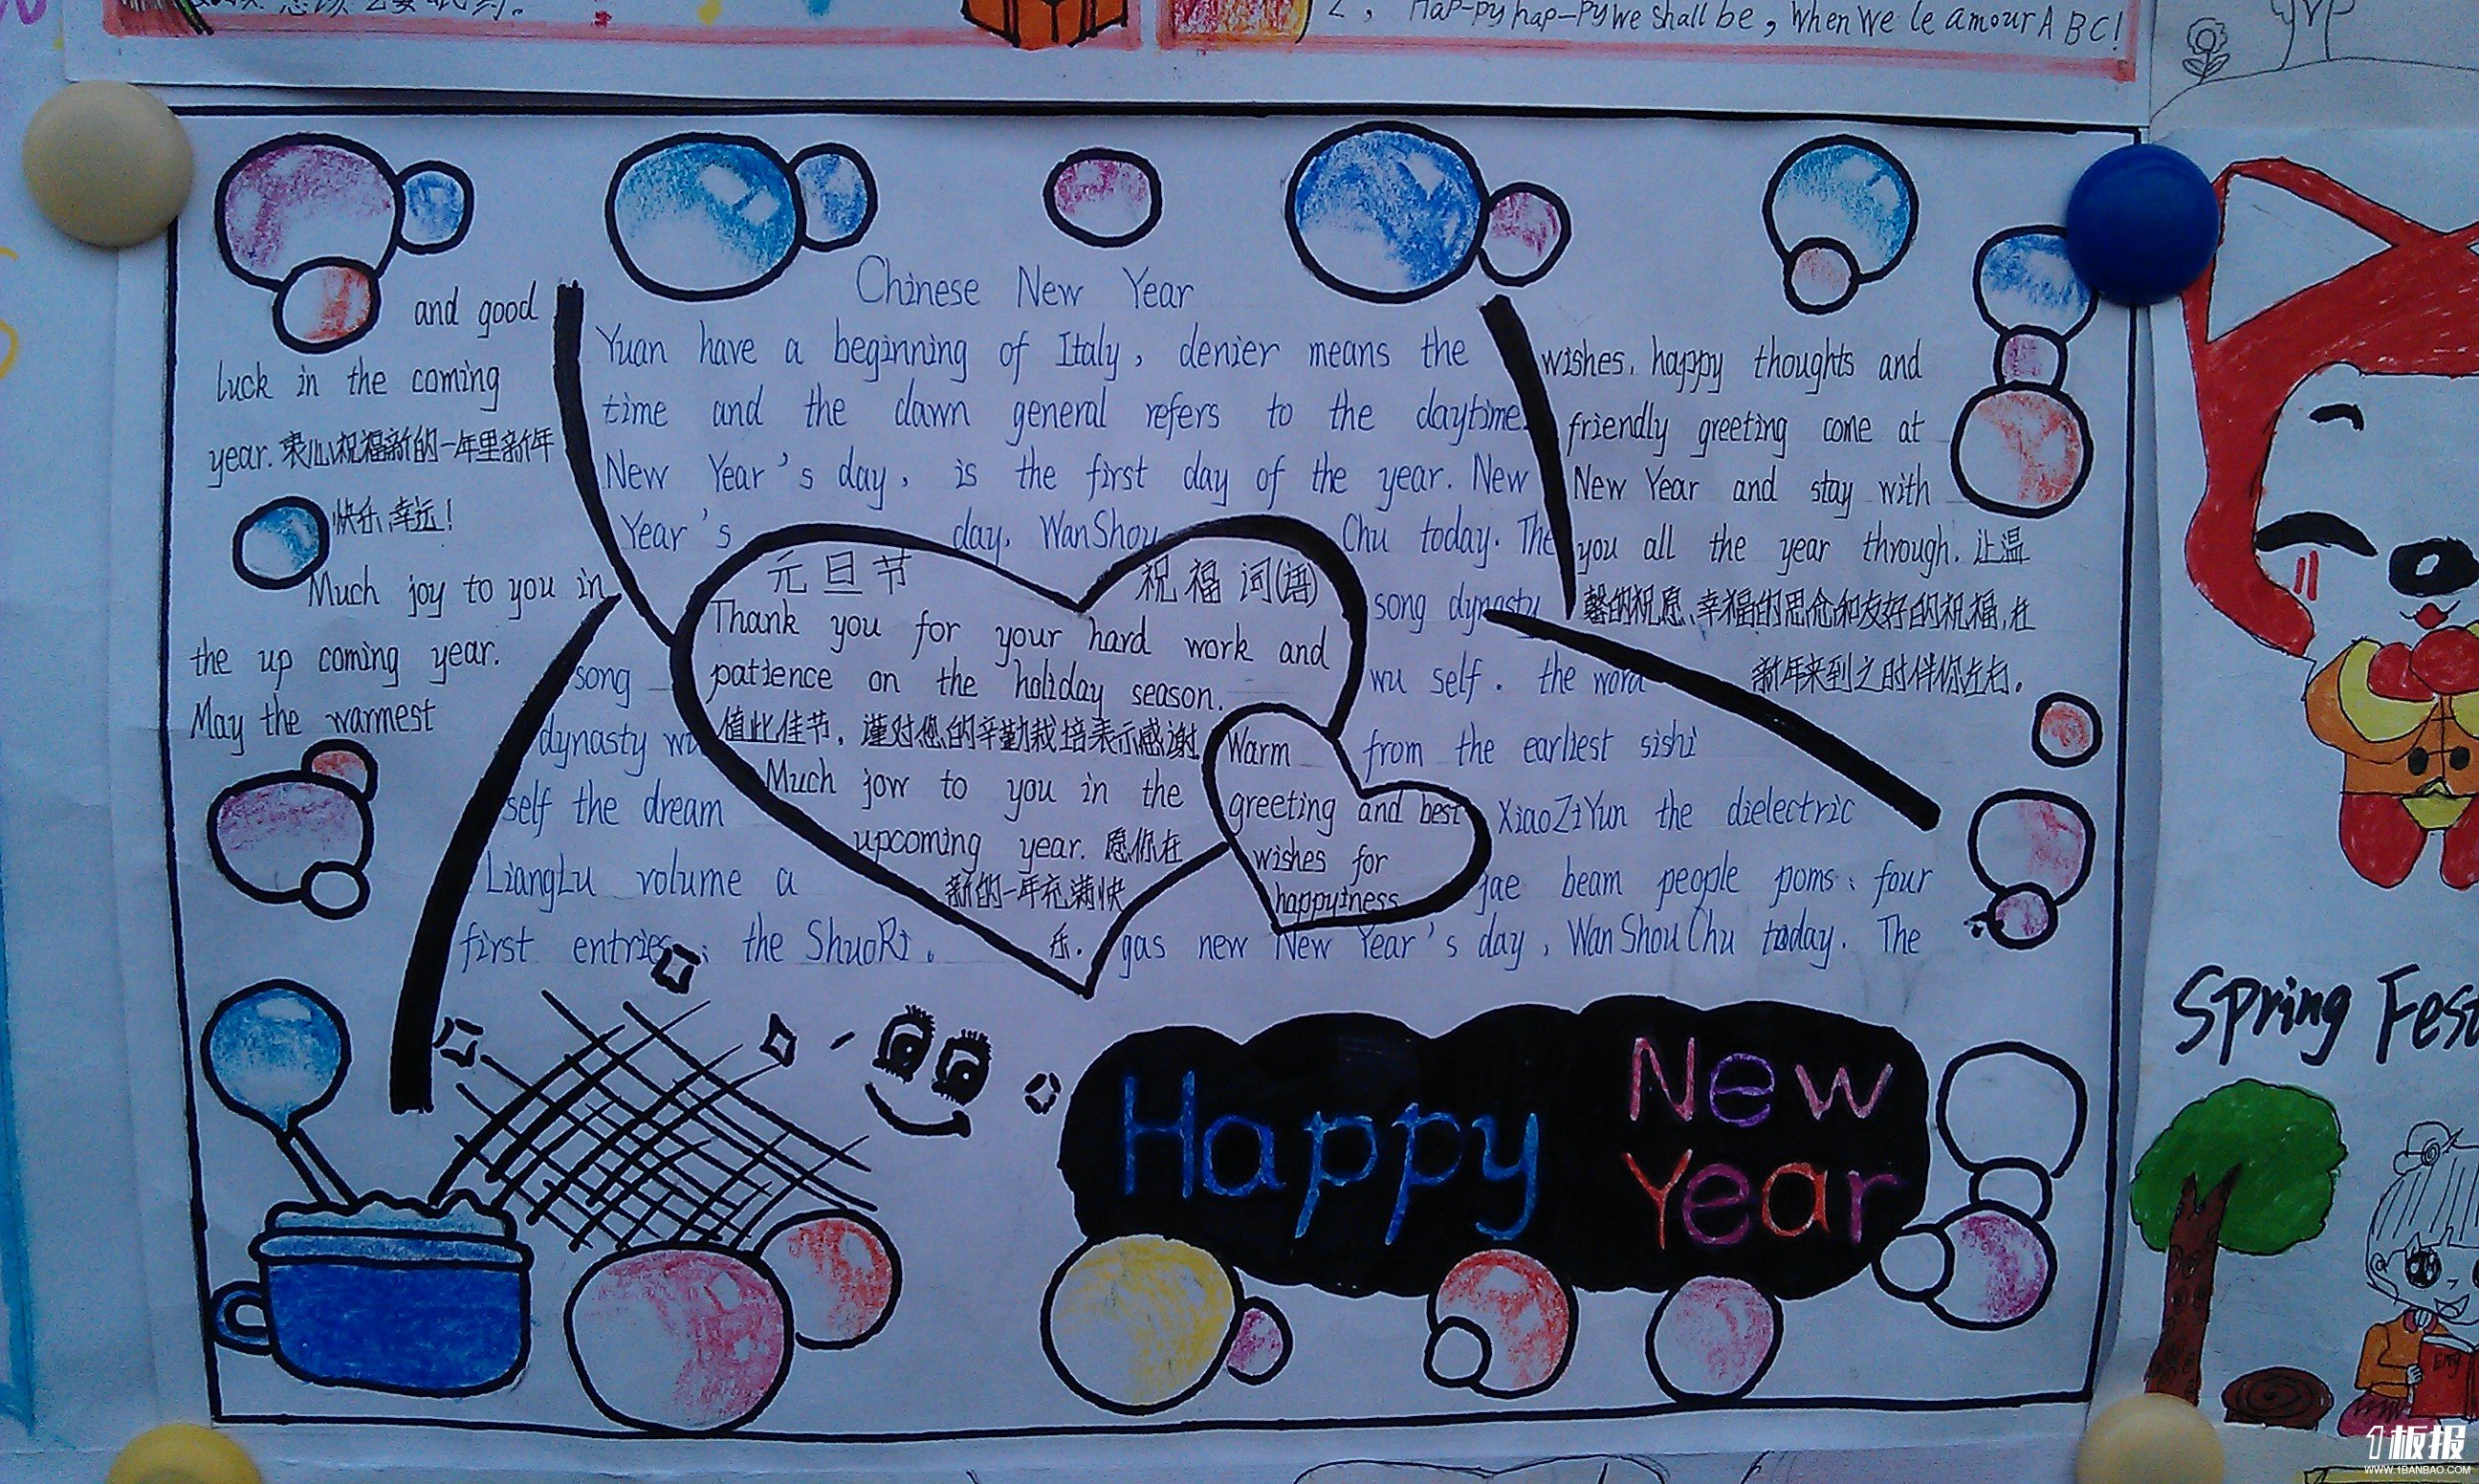 2, Hap-py hap-py we shall be, When We le amour A B C!
Chinese New Year
and good
luck in the coming
year. 衷心祝福新的一年里新年
快乐、幸运!
Much joy to you in
the up coming year.
May the warmest
Yuan have a beginning of Italy, denier means the
time and the dawn general refers to the daytime.
New Year's day, is the first day of the year. New
Year's day, WanShou Chu today. The
song dynasty
song wu self. the word
dynasty wu from the earliest sishi
self the dream XiaoZiYun the dielectric
LiangLu volume a jae beam people poms、four
first entries、the ShuoRi. gas new New Year's day, WanShouChu today. The
元旦节 祝福词(语)
Thank you for your hard work and
patience on the holiday season.
值此佳节,谨对您的辛勤栽培表示感谢.
Much jow to you in the
upcoming year. 愿你在
新的一年充满快
乐.
Warm
greeting and best
wishes for
happyiness
wishes, happy thoughts and
friendly greeting come at
New Year and stay with
you all the year through. 让温
馨的祝愿、幸福的思念和友好的祝福,在
新年来到之时伴你左右。
Happy New
Year
Spring Fest
1板报
WWW.1BANBAO.COM